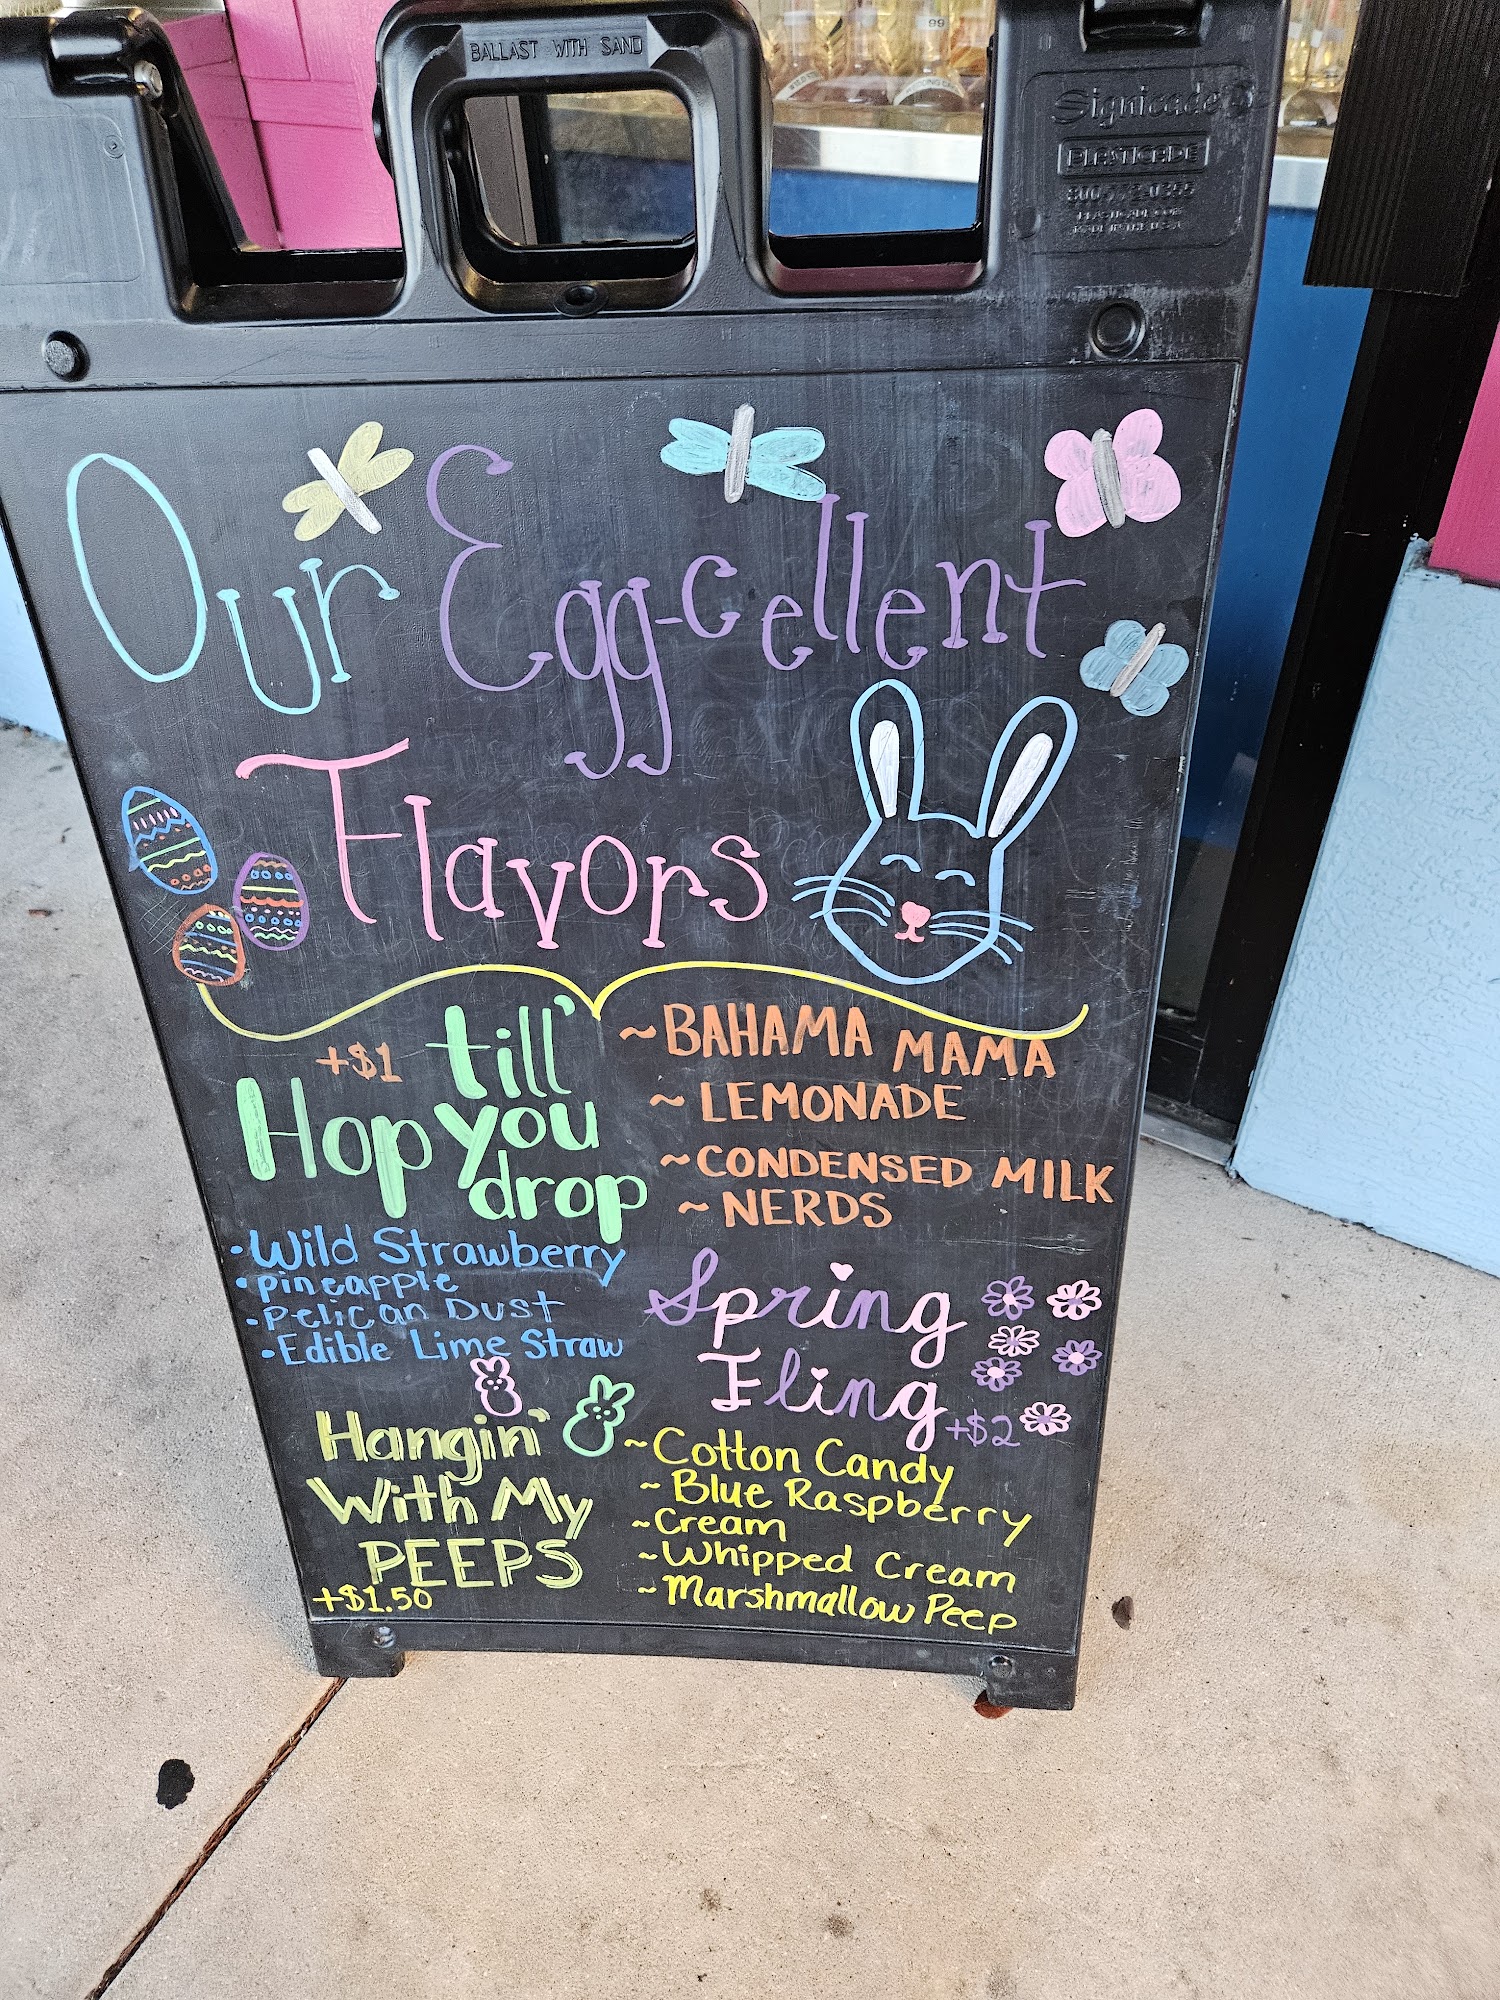 BALLAST WITH SAND
Signicade
PLASTICADE
PLASTICADE.COM
MADE IN THE U.S.A.
99
Our Egg-cellent
Flavors
+$1
Hop till'
you
drop
• Wild Strawberry
• pineapple
• Pelican Dust
• Edible Lime Straw
~BAHAMA MAMA
~LEMONADE
~CONDENSED MILK
~NERDS
Spring
Fling
+$2
Hangin'
With My
PEEPS
+$1.50
~Cotton Candy
~Blue Raspberry
~Cream
~Whipped Cream
~Marshmallow Peep